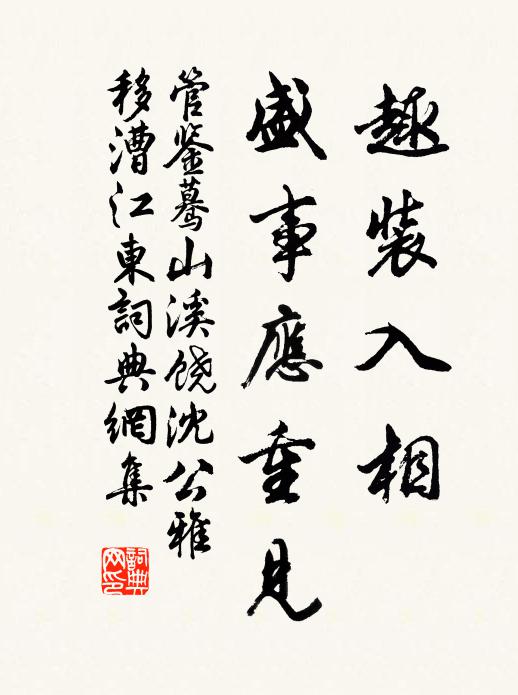 趣裝入相
盛事應重見
管鉴蓦山溪饶沈公雅
移漕江東詞典網集
詞典网印